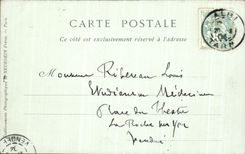 CARTE POSTALE
Ce côté est exclusivement réservé à l'adresse
ALBI
TARN
Monsieur Ribereau Louis
Etudiant en Médecine
Place du Théâtre
La Roche sur Yon
Vendée
VENDÉE